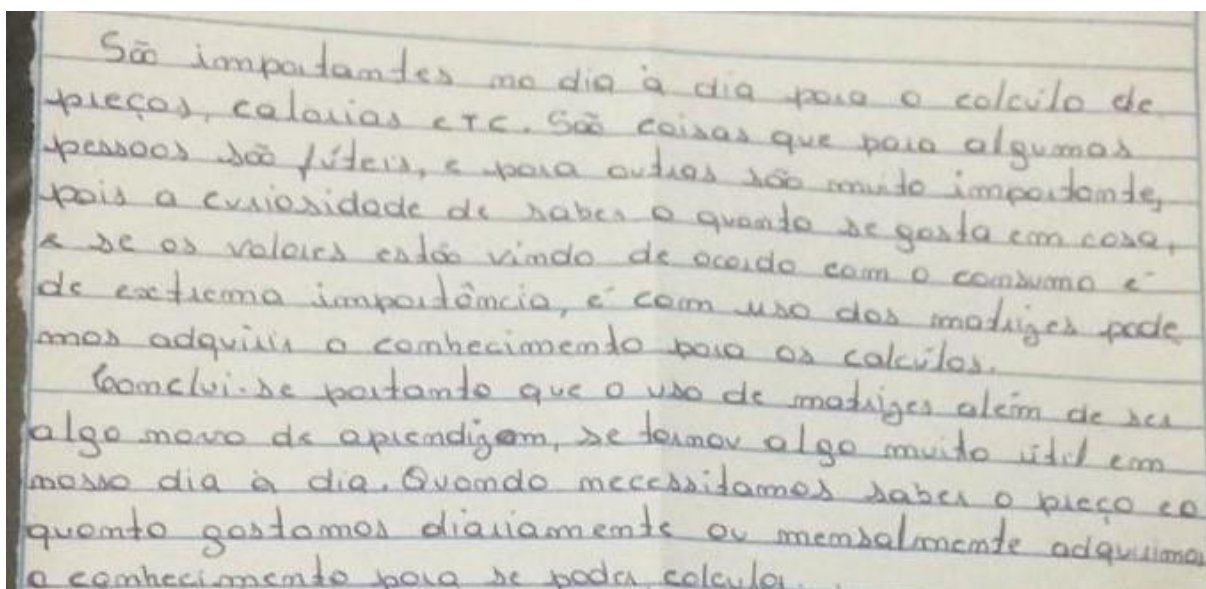 São importantes no dia à dia para o calculo de
preços, calorias etc. São coisas que para algumas
pessoas são fúteis, e para outras são muito importante,
pois a curiosidade de saber o quanto se gasta em casa,
e se os valores estão vindo de acordo com o consumo é
de exetrema importância, e com uso das matrizes pode
mos adquirir o conhecimento para os calculos.
Conclui-se portanto que o uso de matrizes além de ser
algo novo de aprendizem, se tornou algo muito útil em
nosso dia à dia. Quando necessitamos saber o preço eo
quanto gastamos diariamente ou mensalmente adquirimos
o conhecimento para se poder calcular.